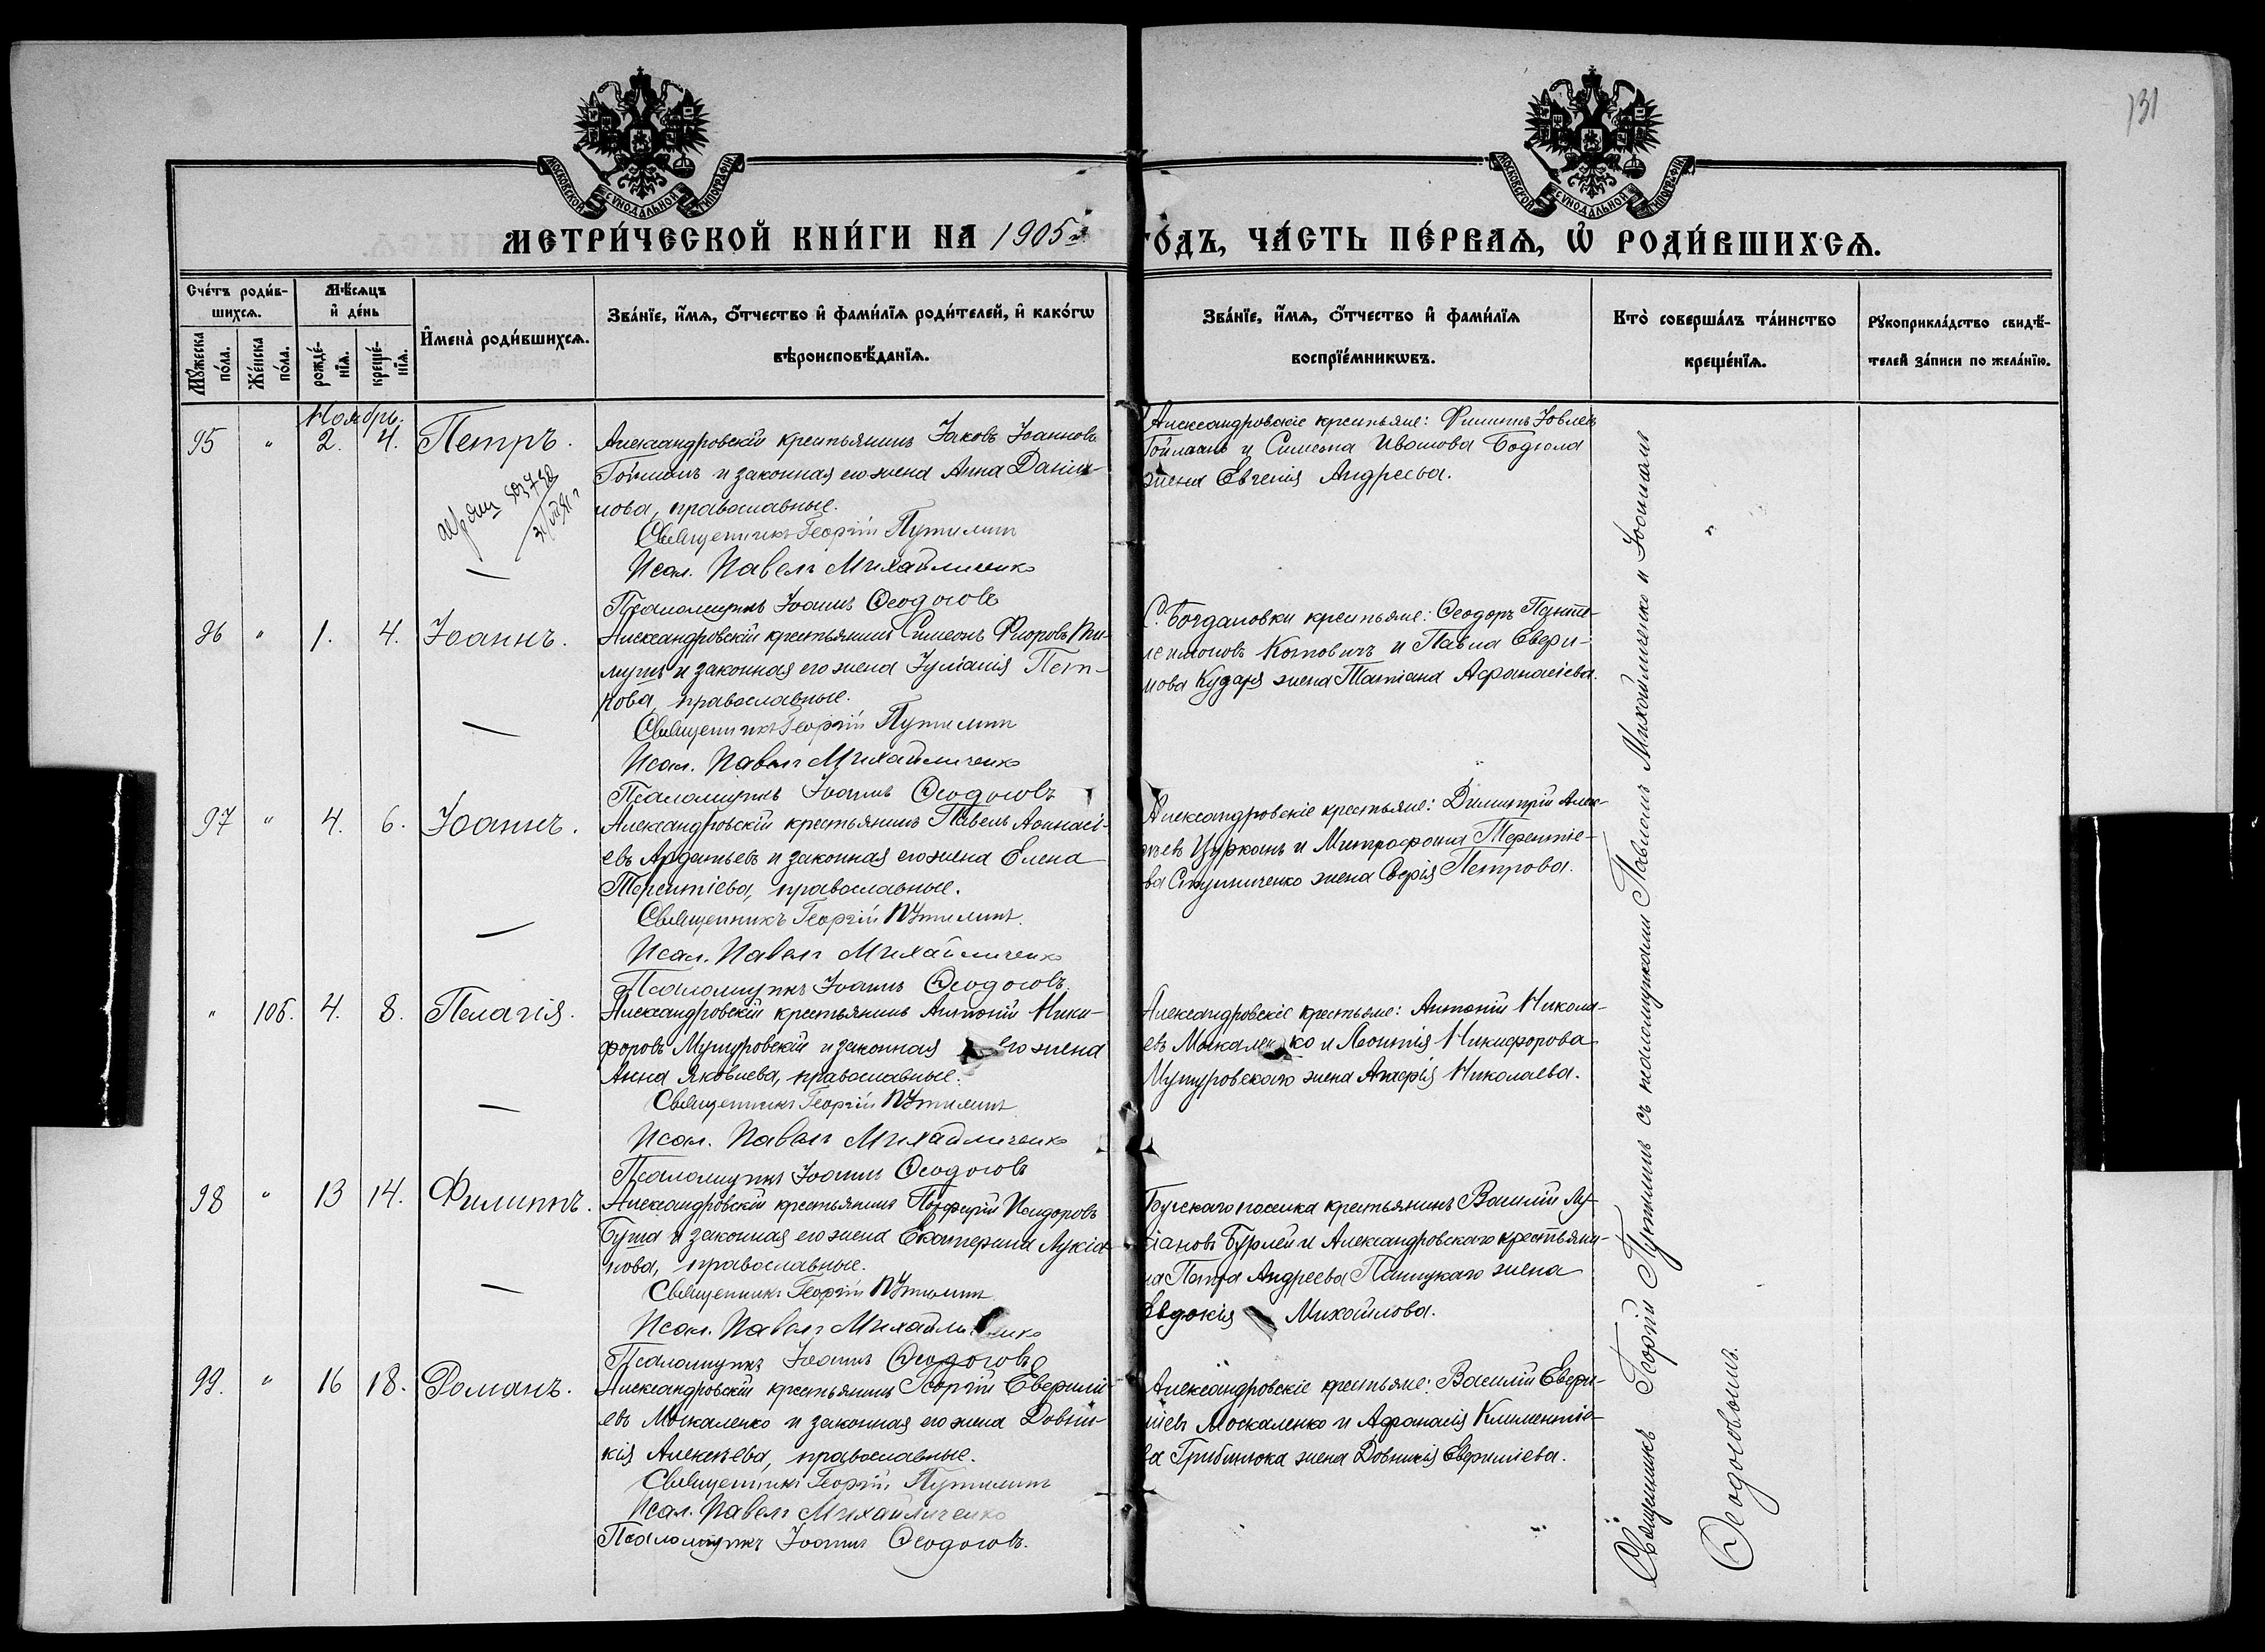 131
МОСКОВСКОЙ СѴНОДАЛЬНОЙ ТИПОГРАФІИ
МОСКОВСКОЙ СѴНОДАЛЬНОЙ ТИПОГРАФІИ
МЕТРИ́ЧЕСКОЙ КНИ́ГИ НА 1905й ГО́ДЪ, ЧА́СТЬ ПЕ́РВАѦ, Ѡ҆ РОДИ́ВШИХСѦ.
Сче́тъ роди́в-
шихсѧ.
Мꙋ́жеска по́ла.
Же́нска по́ла.
Мѣ́сѧцъ
и҆ де́нь
рожде́-
нїѧ.
креще́-
нїѧ.
И҆мена̀ роди́вшихсѧ.
Зва́нїе, и҆́мѧ, ѻ҆́тчество и҆ фами́лїѧ роди́телей, и҆ како́гѡ
вѣроисповѣ́данїѧ.
Зва́нїе, и҆́мѧ, ѻ҆́тчество и҆ фами́лїѧ
воспрїе́мникѡвъ.
Кто̀ соверша́лъ та́инство
креще́нїѧ.
Рꙋкоприкла́дство свидѣ́-
телей за́писи по жела́нїю.
Ноябрь.
95 " 2. 4. Петръ.
Александровскій крестьянинъ Іаковъ Іоанновъ
Гойманъ и законная его жена Анна Даніи-
лова, православные.
Священникъ Георгій Путилинъ
Псал. Павелъ Михайличенко
Псаломщикъ Іоаннъ Ѳеодосовъ
Александровскіе крестьяне: Филиппъ Іовлевъ
Гойманъ и Симеона Иванова Бодюла
жена Евгенія Андреева.
96 " 1. 4. Іоаннъ.
Александровскій крестьянинъ Симеонъ Флоровъ
и законная его жена Іуліанія Пет-
рова, православные.
Священникъ Георгій Путилинъ
Псал. Павелъ Михайличенко
Псаломщикъ Іоаннъ Ѳеодосовъ
С. Богдановки крестьяне: Ѳеодоръ Панте-
леимоновъ Котовичъ и Павла Евфи-
мова Кударя жена Татіана Афанасіева.
97 " 4. 6. Іоаннъ.
Александровскій крестьянинъ Павелъ
евъ Ардатьевъ и законная его жена Елена
Терентіева, православные.
Священникъ Георгій Путилинъ.
Псал. Павелъ Михайличенко
Псаломщикъ Іоаннъ Ѳеодосовъ.
Александровскіе крестьяне: Димитрій Алек-
ѣевъ Цурканъ и Митрофана Терентіе-
ва Ступниченко жена Марія Петрова.
" 106. 4. 8. Пелагія.
Александровскій крестьянинъ Антоній Ники-
форовъ Мушуровскій и законная его жена
Анна Яковлева, православные.
Священникъ Георгій Путилинъ
Псал. Павелъ Михайличенко
Псаломщикъ Іоаннъ Ѳеодосовъ
Александровскіе крестьяне: Антоній Никола-
евъ Москаленко и Леонтія Никифорова
Мушуровскаго жена Агафія Николаева.
98 " 13 14. Филиппъ.
Александровскій крестьянинъ Порфирій Исидоровъ
Бута и законная его жена Екатерина Лукіа-
нова, православные.
Священникъ Георгій Путилинъ
Псал. Павелъ Михайличенко
Псаломщикъ Іоаннъ Ѳеодосовъ
Бугскаго поселка крестьянинъ Василій Лу-
кіановъ Бурлей и Александровскаго крестьяни-
на Петра Андреева Паицкаго жена
Евдокія Михайлова.
99. " 16 18. Романъ.
Александровскій крестьянинъ Георгій Евфимі-
евъ Москаленко и законная его жена Домни-
кія Алексѣева, православные.
Священникъ Георгій Путилинъ
Псал. Павелъ Михайличенко
Псаломщикъ Іоаннъ Ѳеодосовъ.
Александровскіе крестьяне: Василій Евфи-
міевъ Москаленко и Афанасія Климентіе-
ва Грибинюка жена Домникія Евфиміева.
Священникъ Георгій Путилинъ съ псаломщиками Павломъ Михайличенко и Іоанномъ
Ѳеодосовымъ.